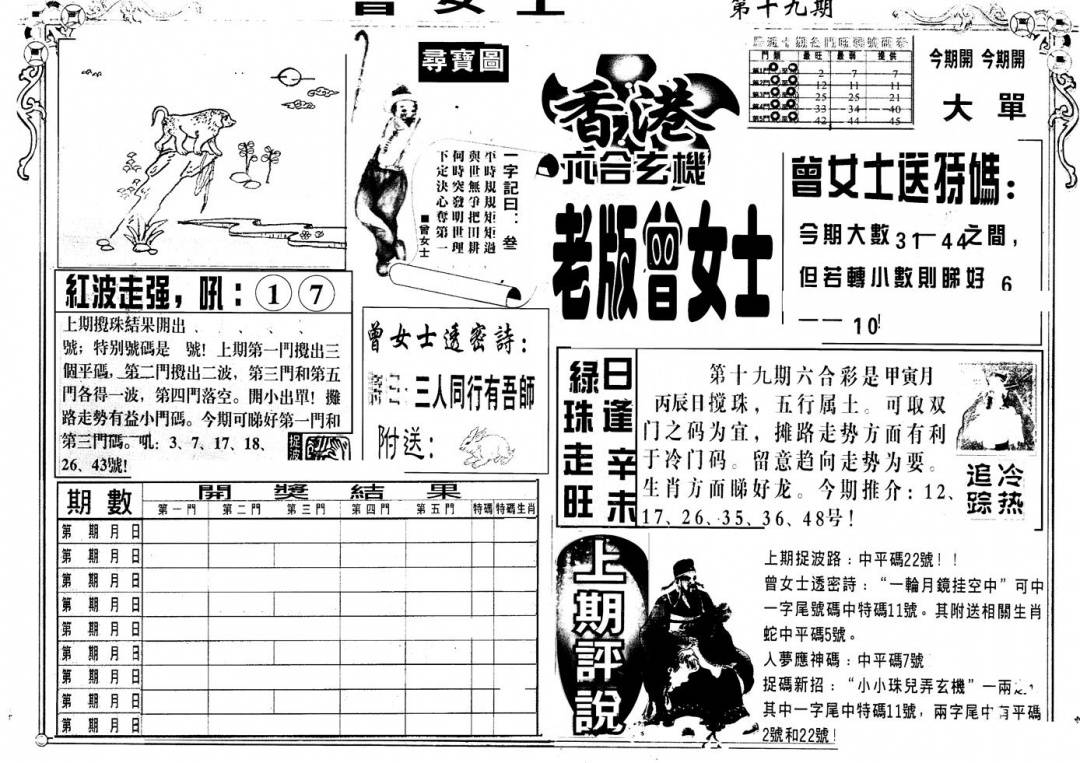 曾女士
第十九期
尋寶圖
一字記曰：叁
平時規規矩矩過
與世無爭把田耕
何時突發明世理
下定決心奪第一
■曾女士
香港
六合玄機
老版曾女士
門類 最旺 最弱 提供
2 7 7
12 11 11
25 25 21
33 34 40
42 44 45
今期開 今期開
大 單
曾女士送特碼：
今期大數31—44之間，
但若轉小數則睇好 6
——10!
紅波走强，吼：1 7
上期攪珠結果開出 、 、 、 、
號；特别號碼是 號！上期第一門攪出三
個平碼，第二門攪出二波，第三門和第五
門各得一波，第四門落空。開小出單！攤
路走勢有益小門碼。今期可睇好第一門和
第三門碼。吼：3、7、17、18、
26、43號！
捉波
曾女士透密詩：
三人同行有吾師
附送：
綠珠走旺
日逢辛未
第十九期六合彩是甲寅月
丙辰日搅珠，五行属土。可取双
门之码为宜，摊路走势方面有利
于冷门码。留意趋向走势为要。
生肖方面睇好龙。今期推介：12、
17、26、35、36、48号！
追踪
冷热
期數 開獎結果
第一門 第二門 第三門 第四門 第五門 特碼 特碼生肖
第 期 月 日
第 期 月 日
第 期 月 日
第 期 月 日
第 期 月 日
第 期 月 日
第 期 月 日
第 期 月 日
第 期 月 日
上期評說
上期捉波路：中平碼22號！！
曾女士透密詩：“一輪月鏡挂空中”可中
一字尾號碼中特碼11號。其附送相關生肖
蛇中平碼5號。
人夢應神碼：中平碼7號
捉碼新招：“小小珠兒弄玄機”一兩
其中一字尾中特碼11號，兩字尾中有平碼
2號和22號！